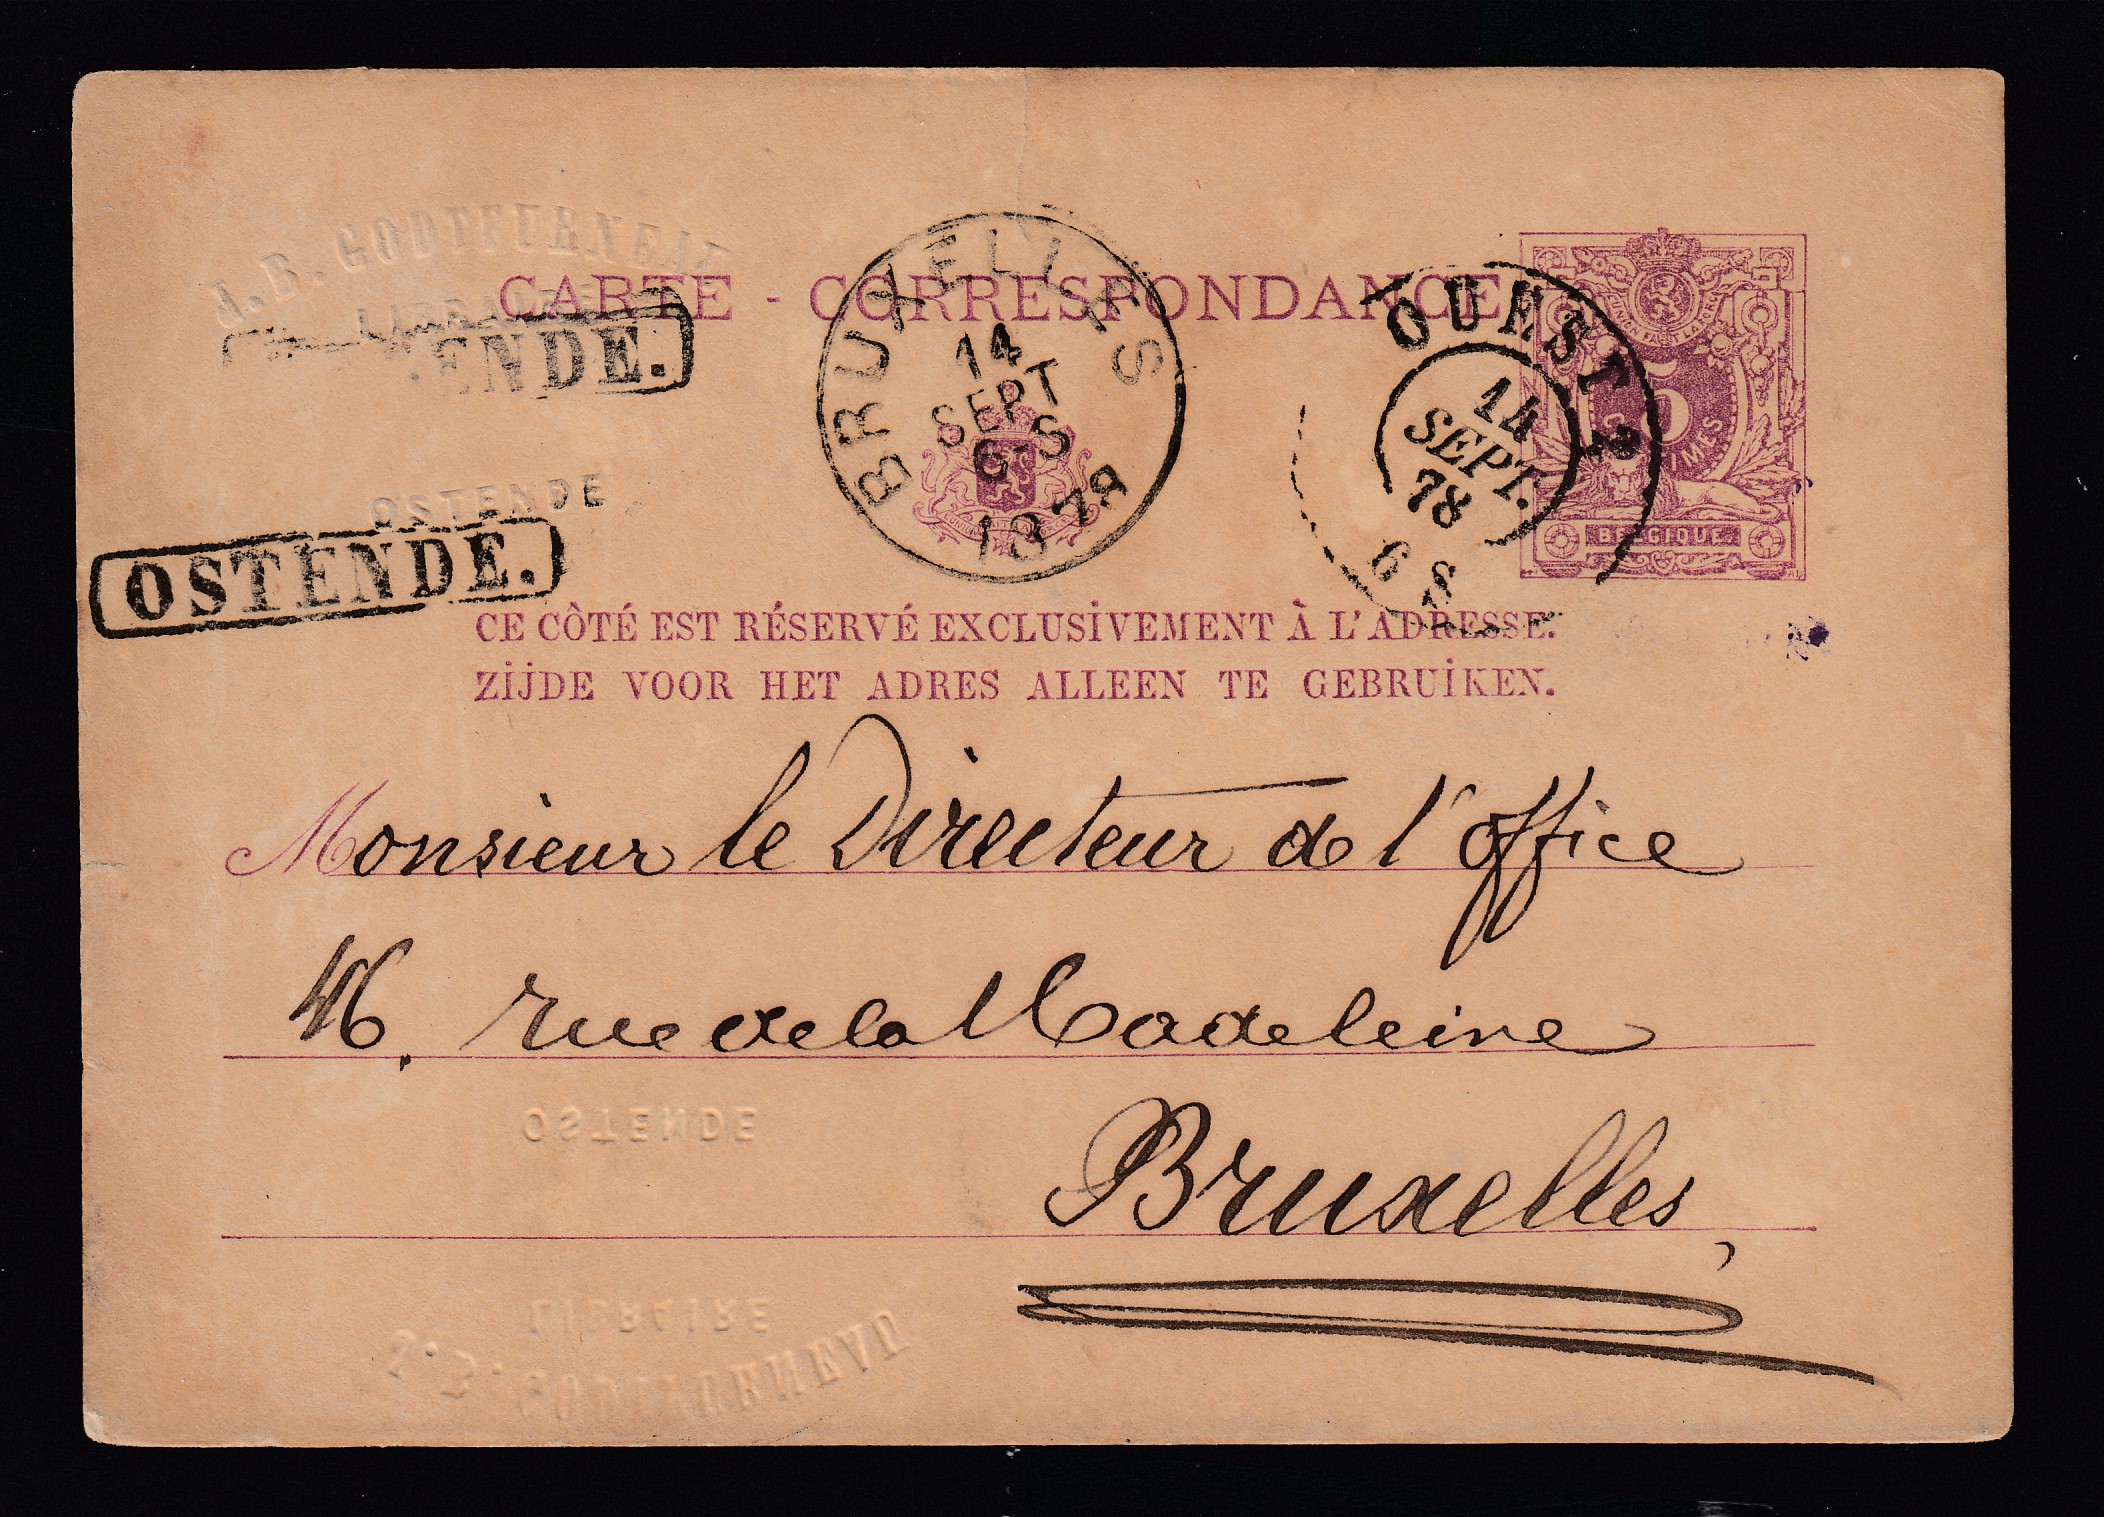 A. B. GODTFURNEAU
LIBRAIRE
CARTE - CORRESPONDANCE
ENDE.
OSTENDE
OSTENDE.
BRUXELLES
14
SEPT
6-S
187
OUEST 2
14
SEPT.
78
6 S
5
BELGIQUE
CE CÔTÉ EST RÉSERVÉ EXCLUSIVEMENT À L'ADRESSE.
ZIJDE VOOR HET ADRES ALLEEN TE GEBRUIKEN.
Monsieur le Directeur de l'office
46. rue de la Madeleine
OSTENDE
Bruxelles,
LIBRAIRE
GODTFURNEAU